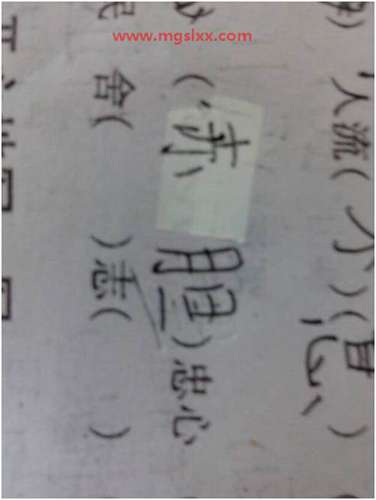 www.mgslxx.com
人流(不)(息)
(赤胆)忠心
舍( )忘( )